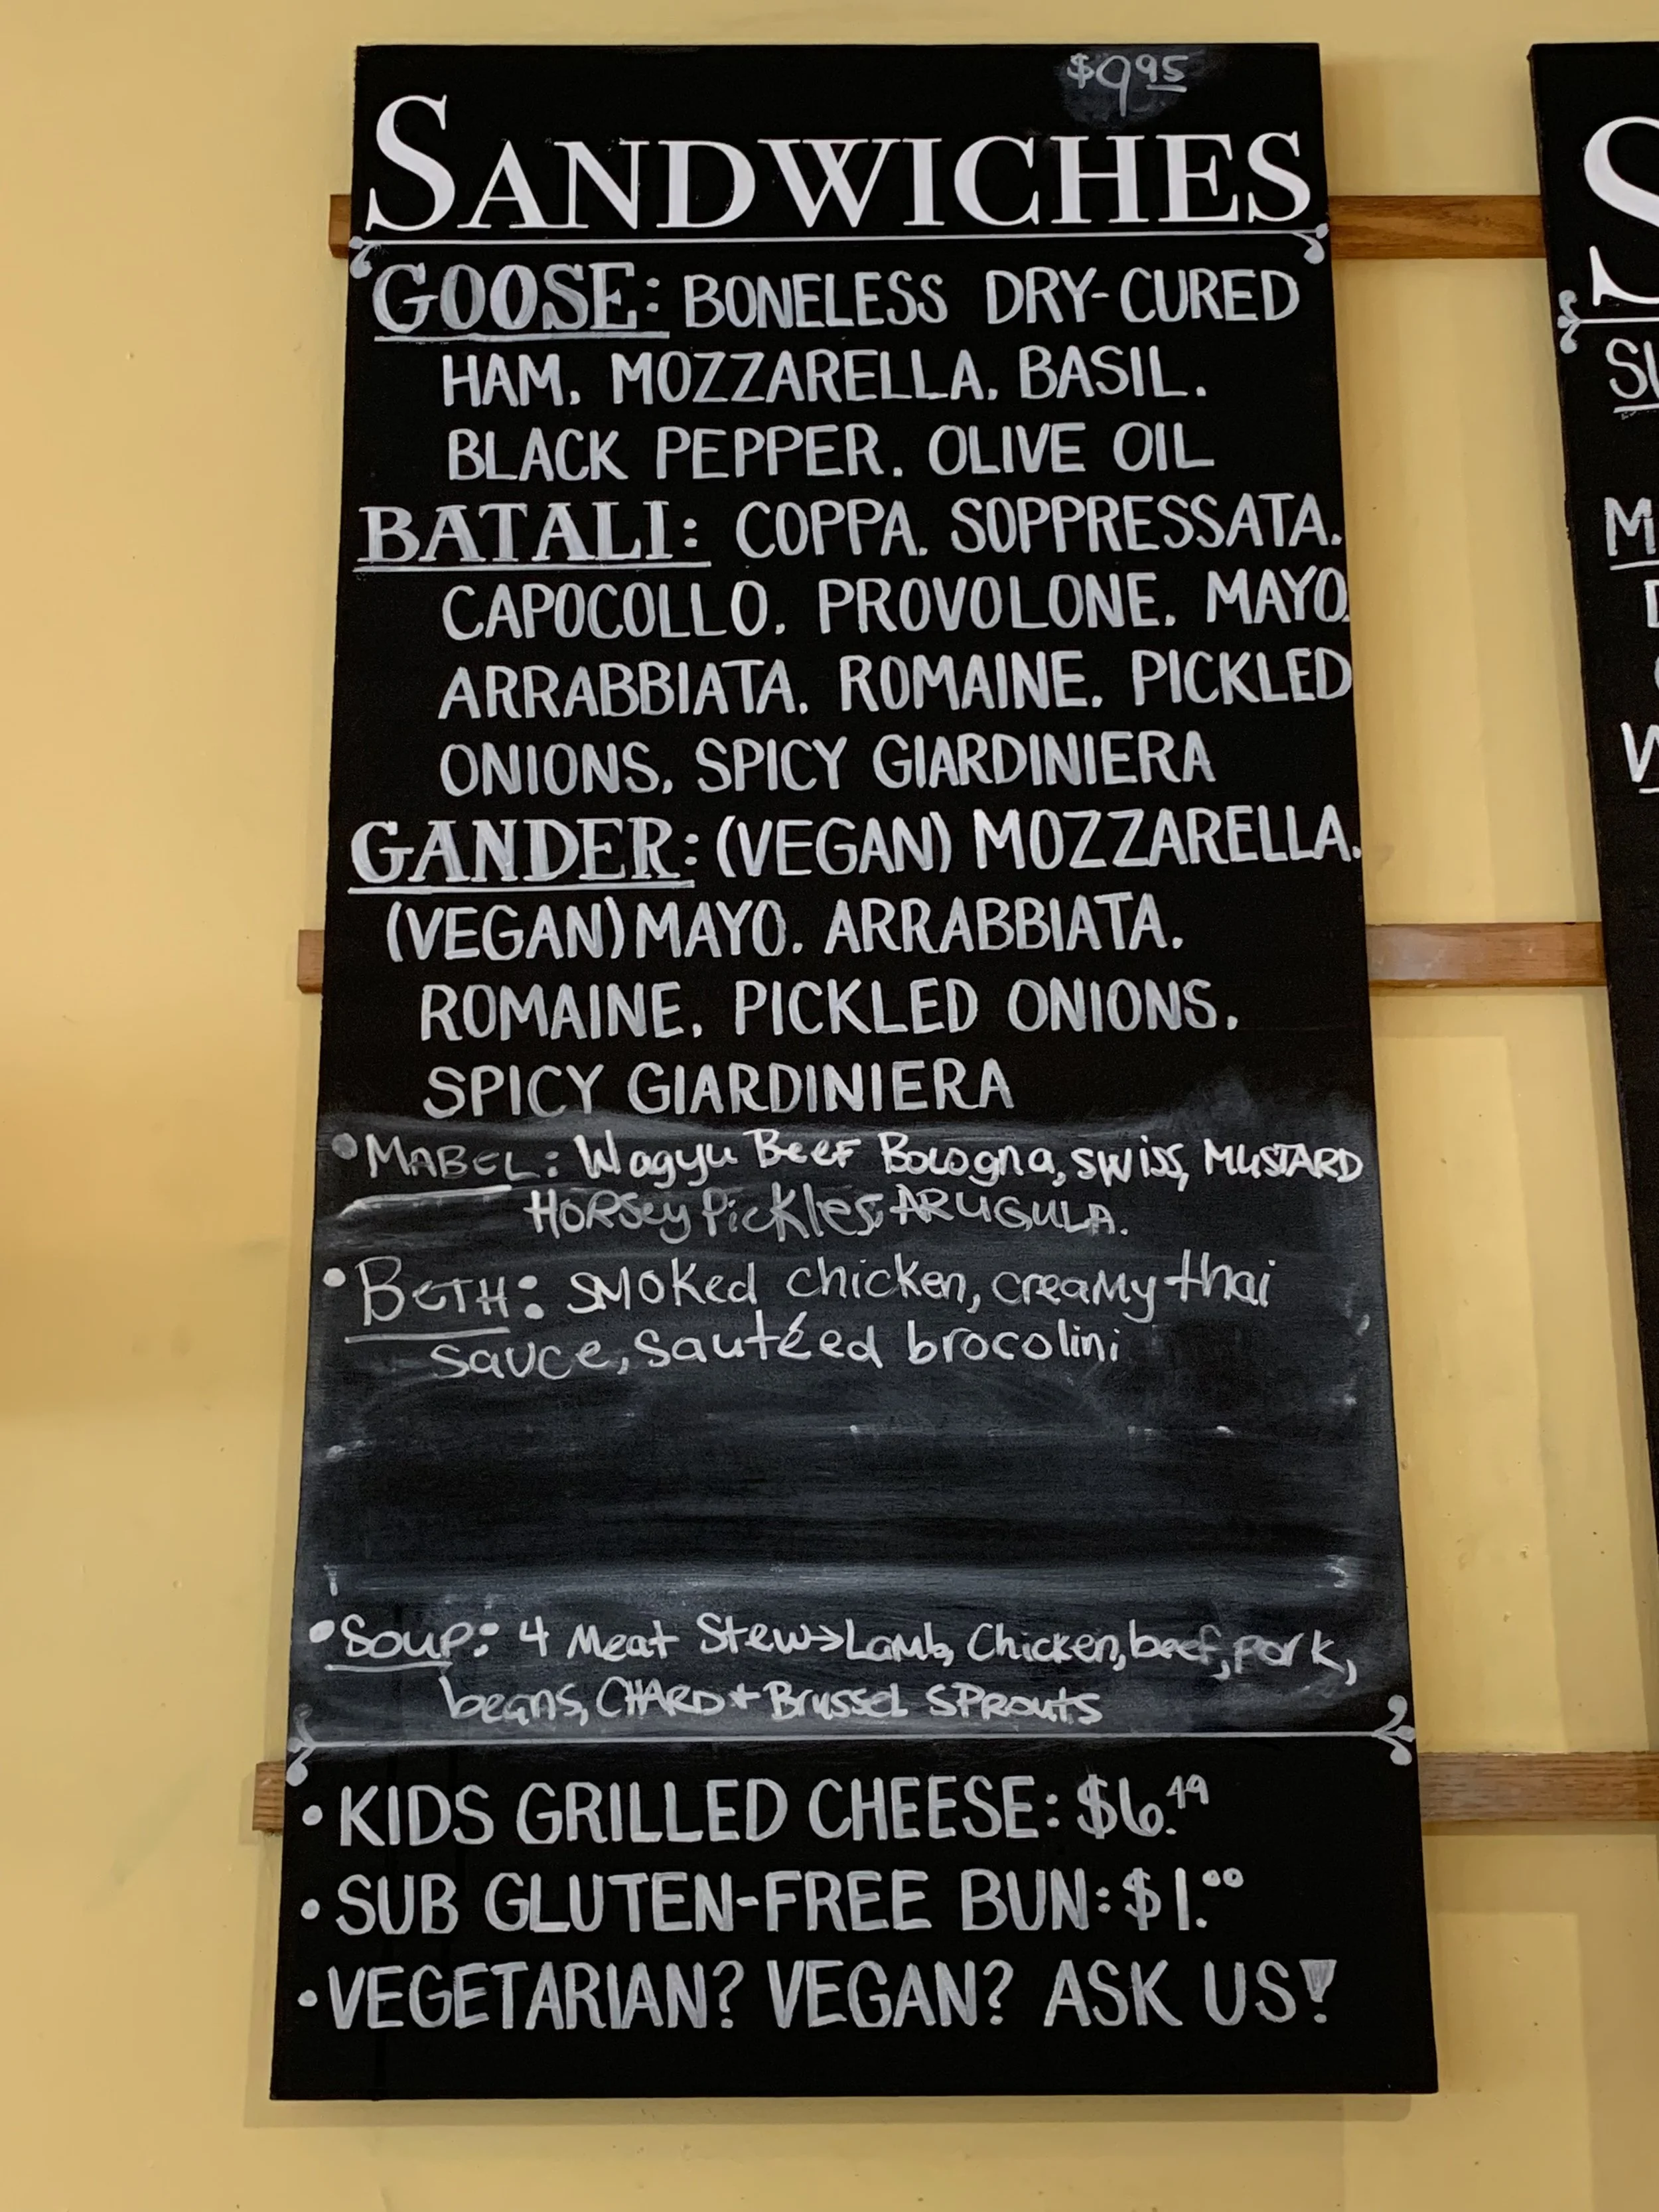 $9.95
SANDWICHES
GOOSE: BONELESS DRY-CURED
HAM. MOZZARELLA. BASIL.
BLACK PEPPER. OLIVE OIL
BATALI: COPPA. SOPPRESSATA.
CAPOCOLLO. PROVOLONE. MAYO.
ARRABBIATA. ROMAINE. PICKLED
ONIONS. SPICY GIARDINIERA
GANDER: (VEGAN) MOZZARELLA.
(VEGAN) MAYO. ARRABBIATA.
ROMAINE. PICKLED ONIONS.
SPICY GIARDINIERA
• MABEL: Wagyu Beef Bologna, swiss, MUSTARD
HORSey Pickles, ARUGULA.
• BETH: smoked chicken, creamy thai
sauce, sautéed brocolini
• Soup: 4 Meat Stew → Lamb, Chicken, beef, pork,
beans, CHARD + Brussel SProuts
• KIDS GRILLED CHEESE: $6.49
• SUB GLUTEN-FREE BUN: $1.00
• VEGETARIAN? VEGAN? ASK US!